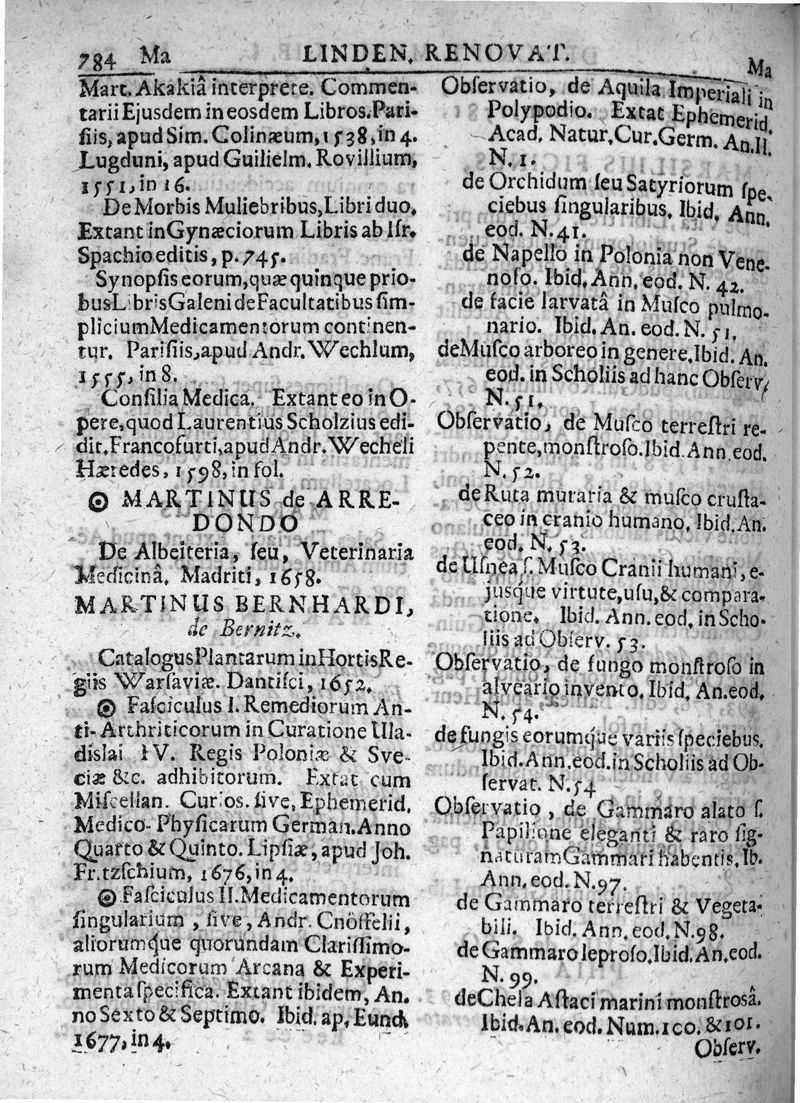 784 Ma LINDEN. RENOVAT. Ma
Mart. Akakiâ interprete. Commen-
tarii Ejusdem in eosdem Libros. Pari-
ſiis, apud Sim. Colinæum, 1538, in 4.
Lugduni, apud Guilielm. Rovillium,
1551, in 16.
De Morbis Muliebribus, Libri duo.
Extant in Gynæciorum Libris ab Iſr.
Spachio editis, p. 745.
Synopſis eorum, quæ quinque prio-
bus Libris Galeni de Facultatibus ſim-
plicium Medicamentorum continen-
tur. Pariſiis, apud Andr. Wechlum,
1555, in 8.
Conſilia Medica. Extant eo in O-
pere, quod Laurentius Scholzius edi-
dit. Francofurti, apud Andr. Wecheli
Hæredes, 1598, in fol.
☉ MARTINUS de ARRE-
DONDO
De Albeiteria, ſeu, Veterinaria
Medicinâ. Madriti, 1658.
MARTINUS BERNHARDI,
de Bernitz.
Catalogus Plantarum in Hortis Re-
giis Warſaviæ. Dantiſci, 1652.
☉ Faſciculus I. Remediorum An-
ti-Arthriticorum in Curatione Ula-
dislai IV. Regis Poloniæ & Sve-
ciæ &c. adhibitorum. Extat cum
Miſcellan. Curios. ſive, Ephemerid.
Medico-Phyſicarum German. Anno
Quarto & Quinto. Lipſiæ, apud Joh.
Fritzſchium, 1676, in 4.
☉ Faſciculus II. Medicamentorum
ſingularium, ſive, Andr. Cnöffelii,
aliorumque quorundam Clariſſimo-
rum Medicorum Arcana & Experi-
menta ſpecifica. Extant ibidem, An.
no Sexto & Septimo. Ibid. ap. Eund.
1677, in 4.
Obſervatio, de Aquila Imperiali in
Polypodio. Extat Ephemerid.
Acad. Natur. Cur. Germ. An. II.
N. 1.
de Orchidum ſeu Satyriorum ſpe-
ciebus ſingularibus. Ibid. Ann.
eod. N. 41.
de Napello in Polonia non Vene-
noſo. Ibid. Ann. eod. N. 42.
de facie larvatâ in Muſco pulmo-
nario. Ibid. An. eod. N. 51.
de Muſco arboreo in genere. Ibid. An.
eod. in Scholiis ad hanc Obſerv.
N. 51.
Obſervatio, de Muſco terreſtri re-
pente, monſtroſo. Ibid. Ann. eod.
N. 52.
de Ruta muraria & muſco cruſta-
ceo in cranio humano. Ibid. An.
eod. N. 53.
de Uſnea ſ. Muſco Cranii humani, e-
jusque virtute, uſu, & compara-
tione. Ibid. Ann. eod. in Scho-
liis ad Obſerv. 53.
Obſervatio, de fungo monſtroſo in
alveario invento. Ibid. An. eod.
N. 54.
de fungis eorumque variis ſpeciebus.
Ibid. Ann. eod. in Scholiis ad Ob-
ſervat. N. 54
Obſervatio, de Gammaro alato ſ.
Papilione eleganti & raro ſig-
naturam Gammari habentis. Ib.
Ann. eod. N. 97.
de Gammaro terreſtri & Vegeta-
bili. Ibid. Ann. eod. N. 98.
de Gammaro leproſo. Ibid. An. eod.
N. 99.
de Chela Aſtaci marini monſtrosâ.
Ibid. An. eod. Num. 100. & 101.
Obſerv.